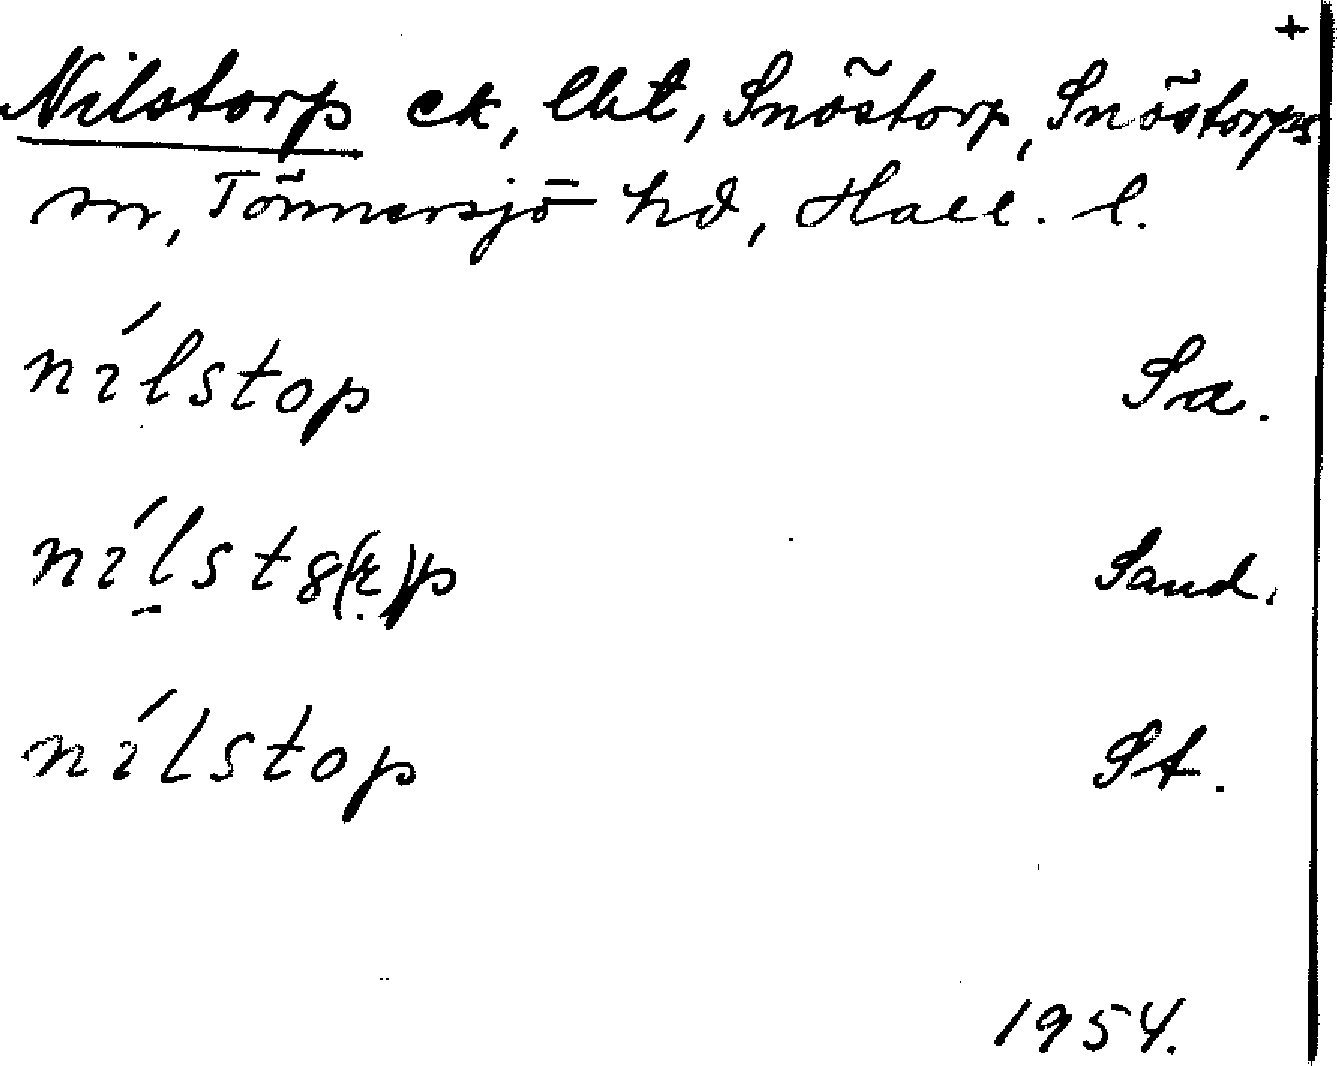 +
Nilstorp ck, lht, Snöstorp, Snöstorps
sn, Tönnersjö hd, Hall. l.
nílstop Sa.
nílst8(r)p Sand.
nílstop St.
1954.